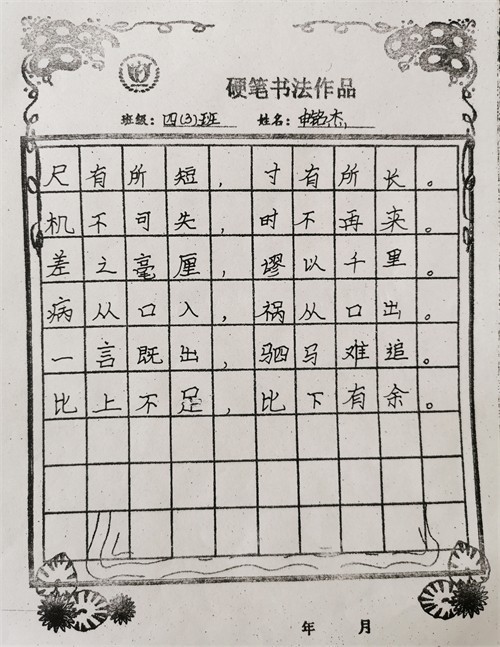 硬笔书法作品
班级：四(3)班 姓名：申铭杰
尺有所短，寸有所长。
机不可失，时不再来。
差之毫厘，谬以千里。
病从口入，祸从口出。
一言既出，驷马难追。
比上不足，比下有余。
年 月